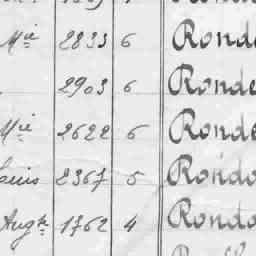 Mie 2833 6 Ronde
2903 6 Ronde
Mie 2622 6 Ronde
Louis 2367 5 Rondo
Augte 1762 4 Rondo